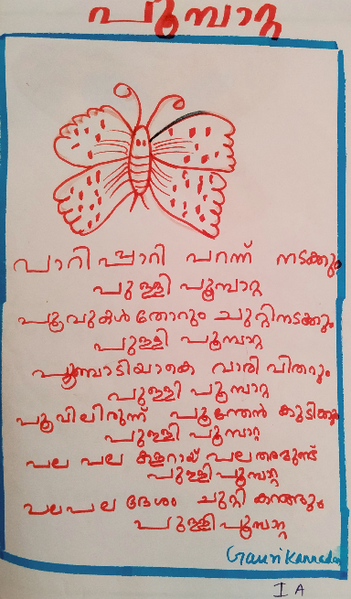 പൂമ്പാറ്റ
പാറിപ്പാറി പറന്ന് നടക്കും
പുള്ളി പൂമ്പാറ്റ
പൂവുകൾതോറും ചുറ്റിനടക്കും
പുള്ളി പൂമ്പാറ്റ
പൂമ്പൊടിയാകെ വാരി വിതറും
പുള്ളി പൂമ്പാറ്റ
പൂവിലിരുന്ന് പൂന്തേൻ കുടിക്കും
പുള്ളി പൂമ്പാറ്റ
പല പല കളറായ് പല തരമുണ്ട്
പുള്ളി പൂമ്പാറ്റ
പല പല ദേശം ചുറ്റി കറങ്ങും
പുള്ളി പൂമ്പാറ്റ
Gauri
I A